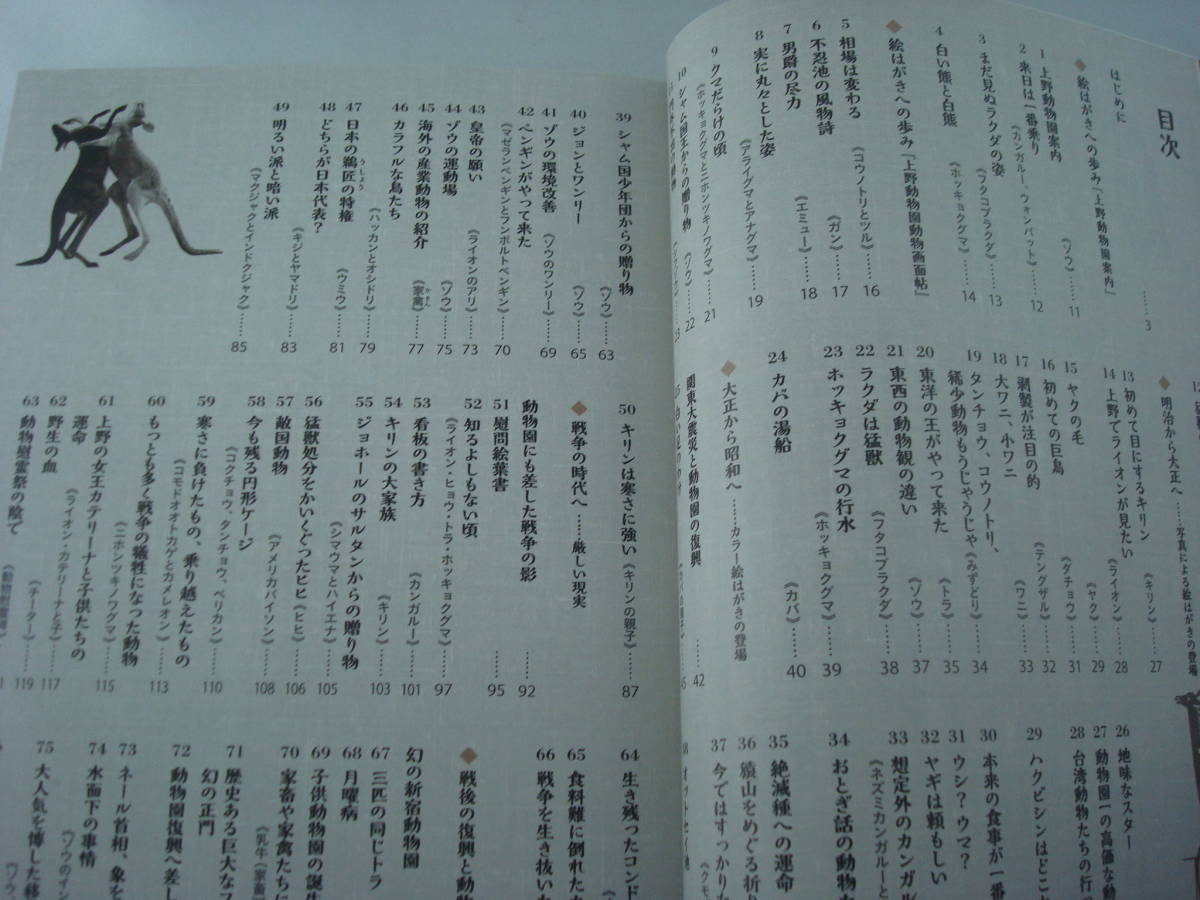 目次
はじめに……3
◆絵はがきへの歩み『上野動物園案内』
1 上野動物園案内《ゾウ》……11
2 来日は一番乗り《カンガルー、ウォンバット》……12
3 まだ見ぬラクダの姿《フタコブラクダ》……13
4 白い熊と白熊《ホッキョクグマ》……14
◆絵はがきへの歩み『上野動物園動物画面帖』
5 相場は変わる《コウノトリとツル》……16
6 不忍池の風物詩《ガン》……17
7 男爵の尽力《エミュー》……18
8 実に丸々とした姿《アライグマとアナグマ》……19
9 クマだらけの頃《ホッキョクグマとニホンツキノワグマ》……21
10 シャム国王からの贈り物《ゾウ》……22
23
◆明治から大正へ……写真による絵はがきの登場
13 初めて目にするキリン《キリン》……27
14 上野でライオンが見たい《ライオン》……28
15 ヤクの毛《ヤク》……29
16 初めての巨鳥《ダチョウ》……31
17 剥製が注目の的《テングザル》……32
18 大ワニ、小ワニ《ワニ》……33
19 タンチョウ、コウノトリ、
稀少動物もうじゃうじゃ《みずどり》……34
20 東洋の王がやって来た《トラ》……35
21 東西の動物観の違い《ゾウ》……37
22 ラクダは猛獣《フタコブラクダ》……38
23 ホッキョクグマの行水《ホッキョクグマ》……39
24 カバの湯船《カバ》……40
◆大正から昭和へ……カラー絵はがきの登場
関東大震災と動物園の復興……42
45
26 地味なスター
27 動物園一の高価な動
28 台湾動物たちの行
29 ハクビシンはどこ
30 本来の食事が一番
31 ウシ?ウマ?
32 ヤギは頼もしい
33 想定外のカンガル
《ネズミカンガルーと
34 おとぎ話の動物
35 絶滅種への運命
36 猿山をめぐる折
37 今ではすっかり
《クモ
39 シャム国少年団からの贈り物《ゾウ》……63
40 ジョンとワンリー《ゾウ》……65
41 ゾウの環境改善《ゾウのワンリー》……69
42 ペンギンがやって来た
《マゼランペンギンとフンボルトペンギン》……70
43 皇帝の願い《ライオンのアリ》……73
44 ゾウの運動場《ゾウ》……75
45 海外の産業動物の紹介《家禽》……77
46 カラフルな鳥たち《ハッカンとオシドリ》……79
47 日本の鵜匠の特権《ウミウ》……81
48 どちらが日本代表?《キジとヤマドリ》……83
49 明るい派と暗い派《マクジャクとインドクジャク》……85
50 キリンは寒さに強い《キリンの親子》……87
◆戦争の時代へ……厳しい現実
動物園にも差した戦争の影……92
51 慰問絵葉書……95
52 知るよしもない頃
《ライオン・ヒョウ・トラ・ホッキョクグマ》……97
53 看板の書き方《カンガルー》……101
54 キリンの大家族《キリン》……103
55 ジョホールのサルタンからの贈り物
《シマウマとハイエナ》……105
56 猛獣処分をかいくぐったヒヒ《ヒヒ》……106
57 敵国動物《アメリカバイソン》……108
58 今も残る円形ケージ
《コクチョウ、タンチョウ、ペリカン》……110
59 寒さに負けたもの、乗り越えたもの
《コモドオオトカゲとカメレオン》……113
60 もっとも多く戦争の犠牲になった動物
《ニホンツキノワグマ》……115
61 上野の女王カテリーナと子供たちの
運命《ライオン・カテリーナと子》……117
62 野生の血《チーター》……119
63 動物慰霊祭の陰で
64 生き残ったコンド
65 食料難に倒れた
66 戦争を生き抜い
◆戦後の復興と動
幻の新宿動物園
67 三匹の同じトラ
68 月曜病
69 子供動物園の誕生
70 家畜や家禽たちに
《乳牛(家畜)
71 歴史ある巨大な
幻の正門
72 動物園復興へ差し
73 ネール首相、象を
《ゾウのイン
74 水面下の事情
75 大人気を博した移
《ゾウ